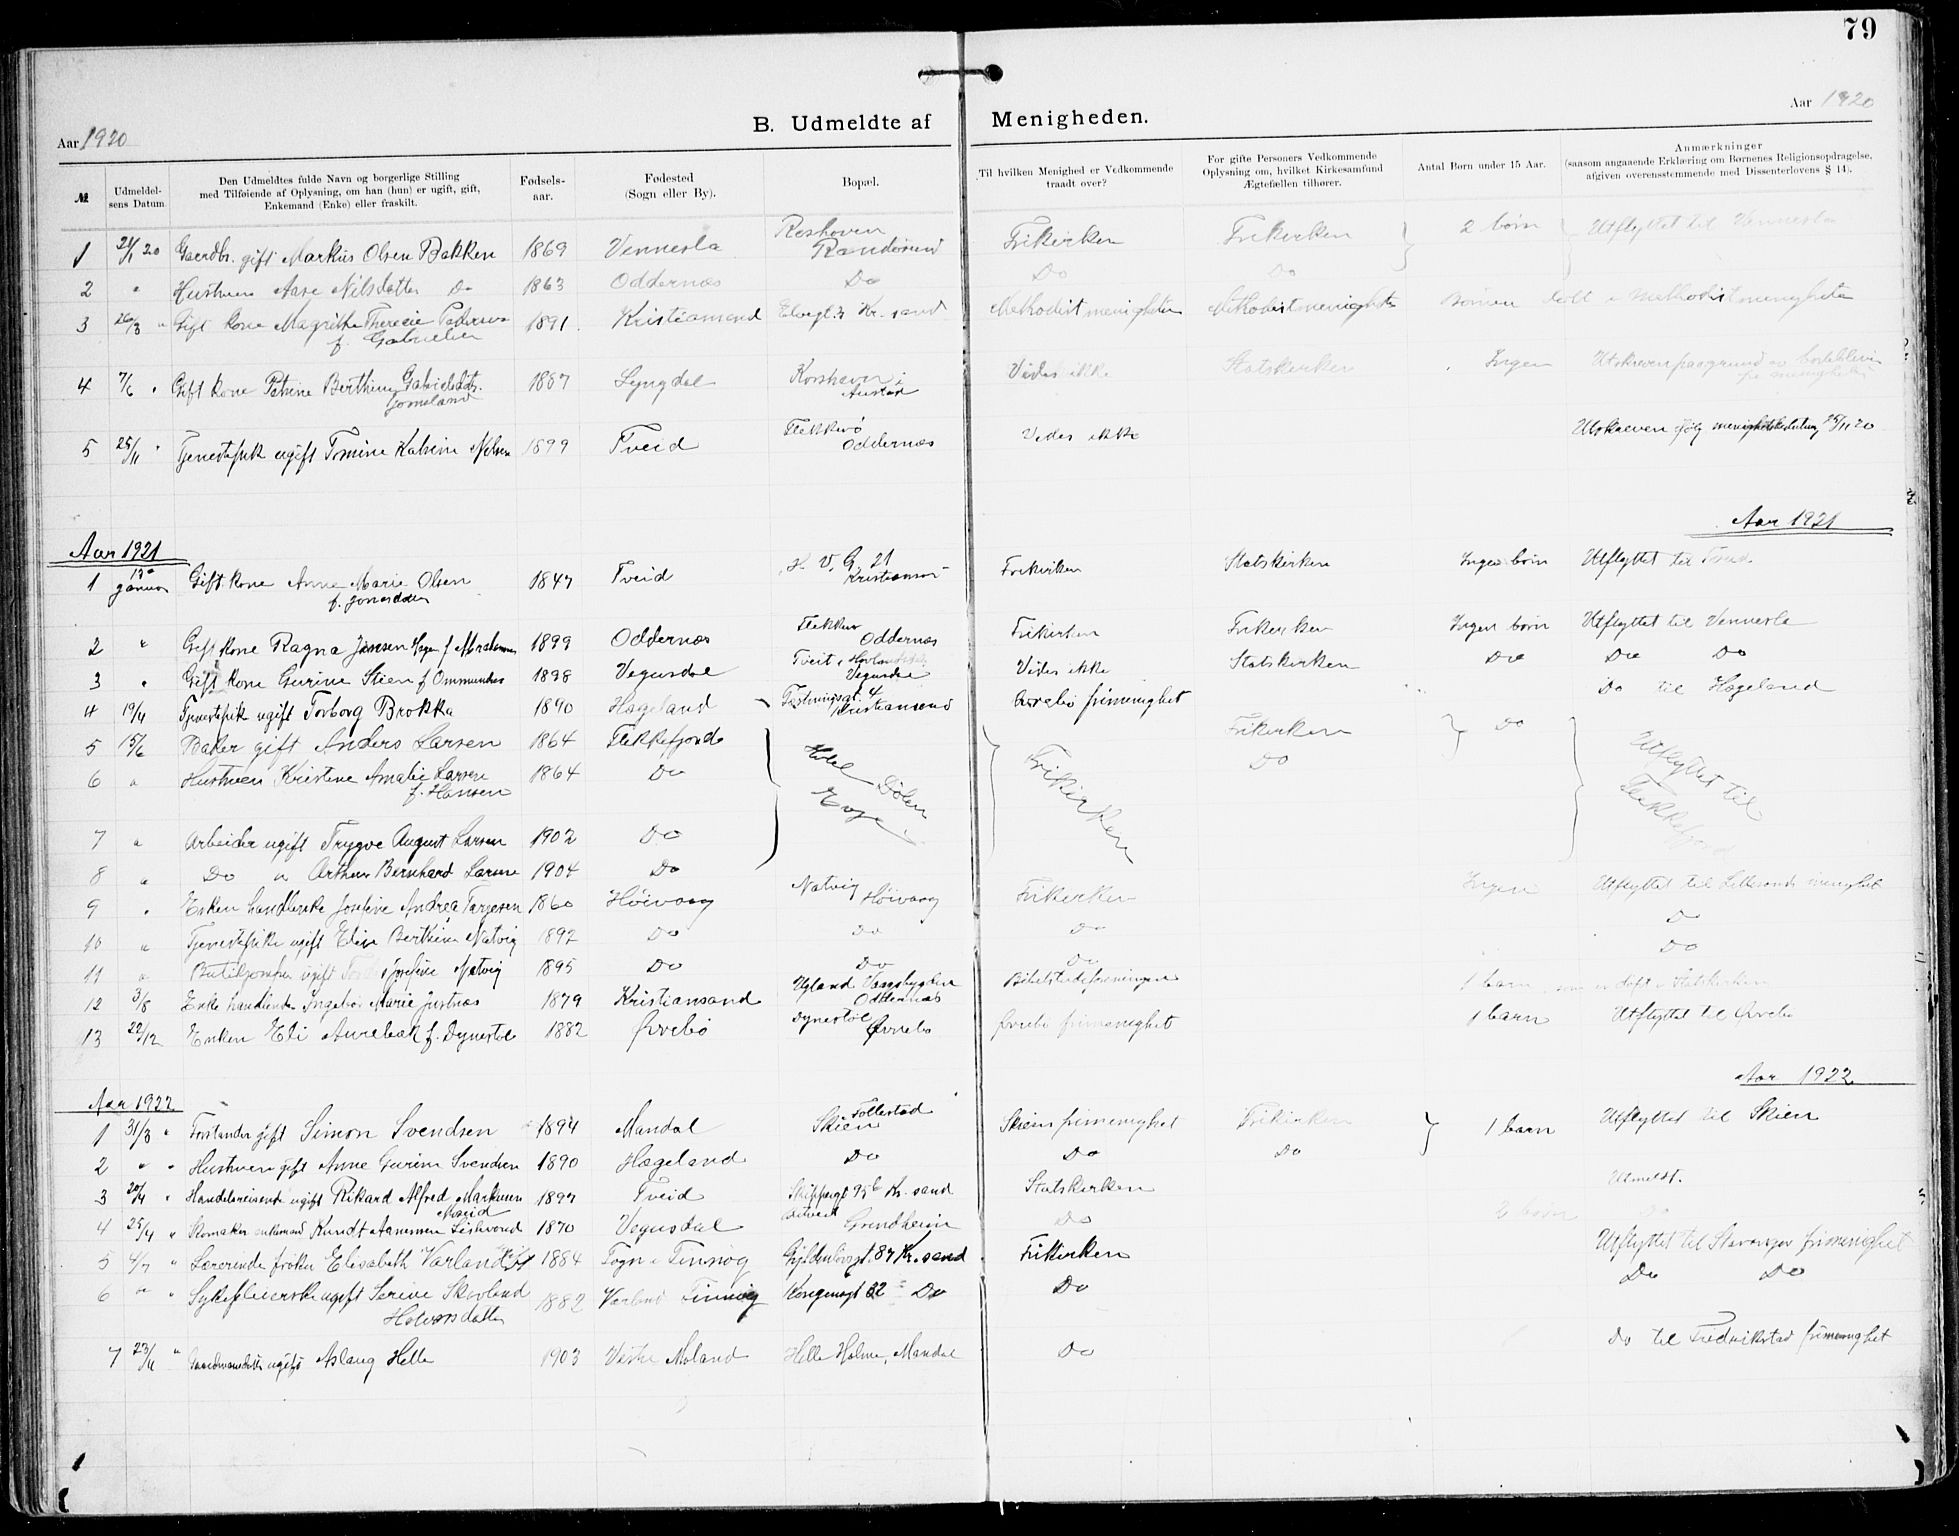 79
Aar 1920
B. Udmeldte af Menigheden.
Aar 1920
№
Udmeldelsens Datum.
Den Udmeldtes fulde Navn og borgerlige Stilling
med Tilføiende af Oplysning, om han (hun) er ugift, gift,
Enkemand (Enke) eller fraskilt.
Fødselsaar.
Fødested
(Sogn eller By).
Bopæl.
Til hvilken Menighed er Vedkommende
traadt over?
For gifte Personers Vedkommende
Oplysning om, hvilket Kirkesamfund
Ægtefællen tilhører.
Antal Børn under 15 Aar.
Anmærkninger
(saasom angaaende Erklæring om Børnenes Religionsopdragelse,
afgiven overensstemmende med Dissenterlovens § 14).
1 24/1 20 Gaardbr. gift Markus Olsen Bakken 1869 Vennesla Randøsund Frikirken Frikirken 2 børn Utflyttet til Vennesla
2 " Hustruen Aase Nilsdatter Do 1863 Oddernæs Do Do Do
3 26/3 " Gift kone Magrithe Therecie Pedersen f. Gabrielsen 1891 Kristiansand Kr. sand Methodistmenigheten Methodistmenigheten Børnene døbt i Methodistmenigheten
4 7/6 " Gift kone Petrine Berthine Gabrielsdtr. 1867 Lyngdal Korshavn i Vides ikke Statskirken Ingen Utskreven paagrund av
5 25/11 " Tjenestepike ugift Tomine Katrine Nilsen 1899 Tveid Flekkerø Oddernæs Vides ikke Utskreven ifølg menighetsbeslutning 25/11 20
Aar 1921
Aar 1921
1 januar Gift kone Anne Marie Olsen 1847 Tveid H. V. G. 21 Kristiansand Frikirken Statskirken Ingen børn Utflyttet til Tveid.
2 " Gift kone Ragna Jensen 1899 Oddernæs Flekkerø Oddernæs Frikirken Frikirken Ingen børn Utflyttet til Vennesla
3 " Gift kone Gurine Stien f. Ommundsen 1898 Vegusdal Tveit Vegusdal Vides ikke Statskirken Do Do Do
4 19/4 Tjenestepik ugift Torborg Brokka 1890 Hægeland Festningsgt. 4 Kristiansand Øvrebø frimenighet Do til Hægeland
5 15/6 Baker gift Anders Larsen 1864 Flekkefjord Hotel Dølen Frikirken Frikirken Do Utflyttet til Flekkefjord
6 " Hustruen Kristine Amalie Larsen f. Hansen 1864 Do Do
7 " Arbeider ugift Trygve August Larsen 1902 Do
8 " Do " Arthur Bernhard Larsen 1904 Do
9 " Enken handlerske Josefine Andrea Terjesen 1860 Høivaag Natvig Høivaag Frikirken Ingen Utflyttet til Lillesands menighet
10 " Tjenestepike ugift Elise Berthine Natvig 1892 Do Do Do Do
11 " ugift Josefine Natvig 1895 Do Do Do Do
12 3/8 Enke handlende Ingebor Marie Justnæs 1879 Kristiansand Ugland Vaagsbygden Oddernæs 1 barn som er døpt i Statskirken
13 22/12 Enken Eli Aurebæk f. Dynestøl 1882 Øvrebø Dynestøl Øvrebø Øvrebø frimenighet 1 barn Utflyttet til Øvrebø
Aar 1922
Aar 1922
1 31/3 " Forstander gift Simon Svendsen 1894 Mandal Follestad Skien Skiens frimenighet Frikirken 1 barn Utflyttet til Skien
2 " " Hustruen gift Anne Gurine Svendsen 1890 Hægeland Do Do Do
3 20/4 " Handelsreisende ugift Rikard Alfred Markussen 1897 Tveid Skippergt 95b Kr. sand Statskirken Utmeldt.
4 25/4 " Skomaker enkemand Knudt Aanensen 1870 Vegusdal Grindheim Do 2 børn Do
5 4/7 " Lærerinde frøken Elisabeth Varland 1884 Sogn i Tinnog Gyldenløvsgt. 87 Kr. sand Frikirken Utflyttet til Stavanger frimenighet
6 " " Sykepleierske ugift Serine Skovland Halvorsdatter 1882 Kongensgt 32 Do Do Do Do
7 23/11 " ugift Aslaug Helle 1903 Vestre Moland Helle Holme, Mandal Do Do til Fredrikstad frimenighet